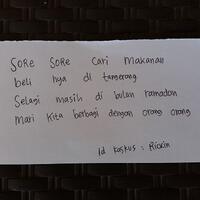 SORE SORE Cari Makanan
beli nya di tangerang
Selagi masih di bulan ramadan
Mari kita berbagi dengan orang orang
Id kaskus : Riokin